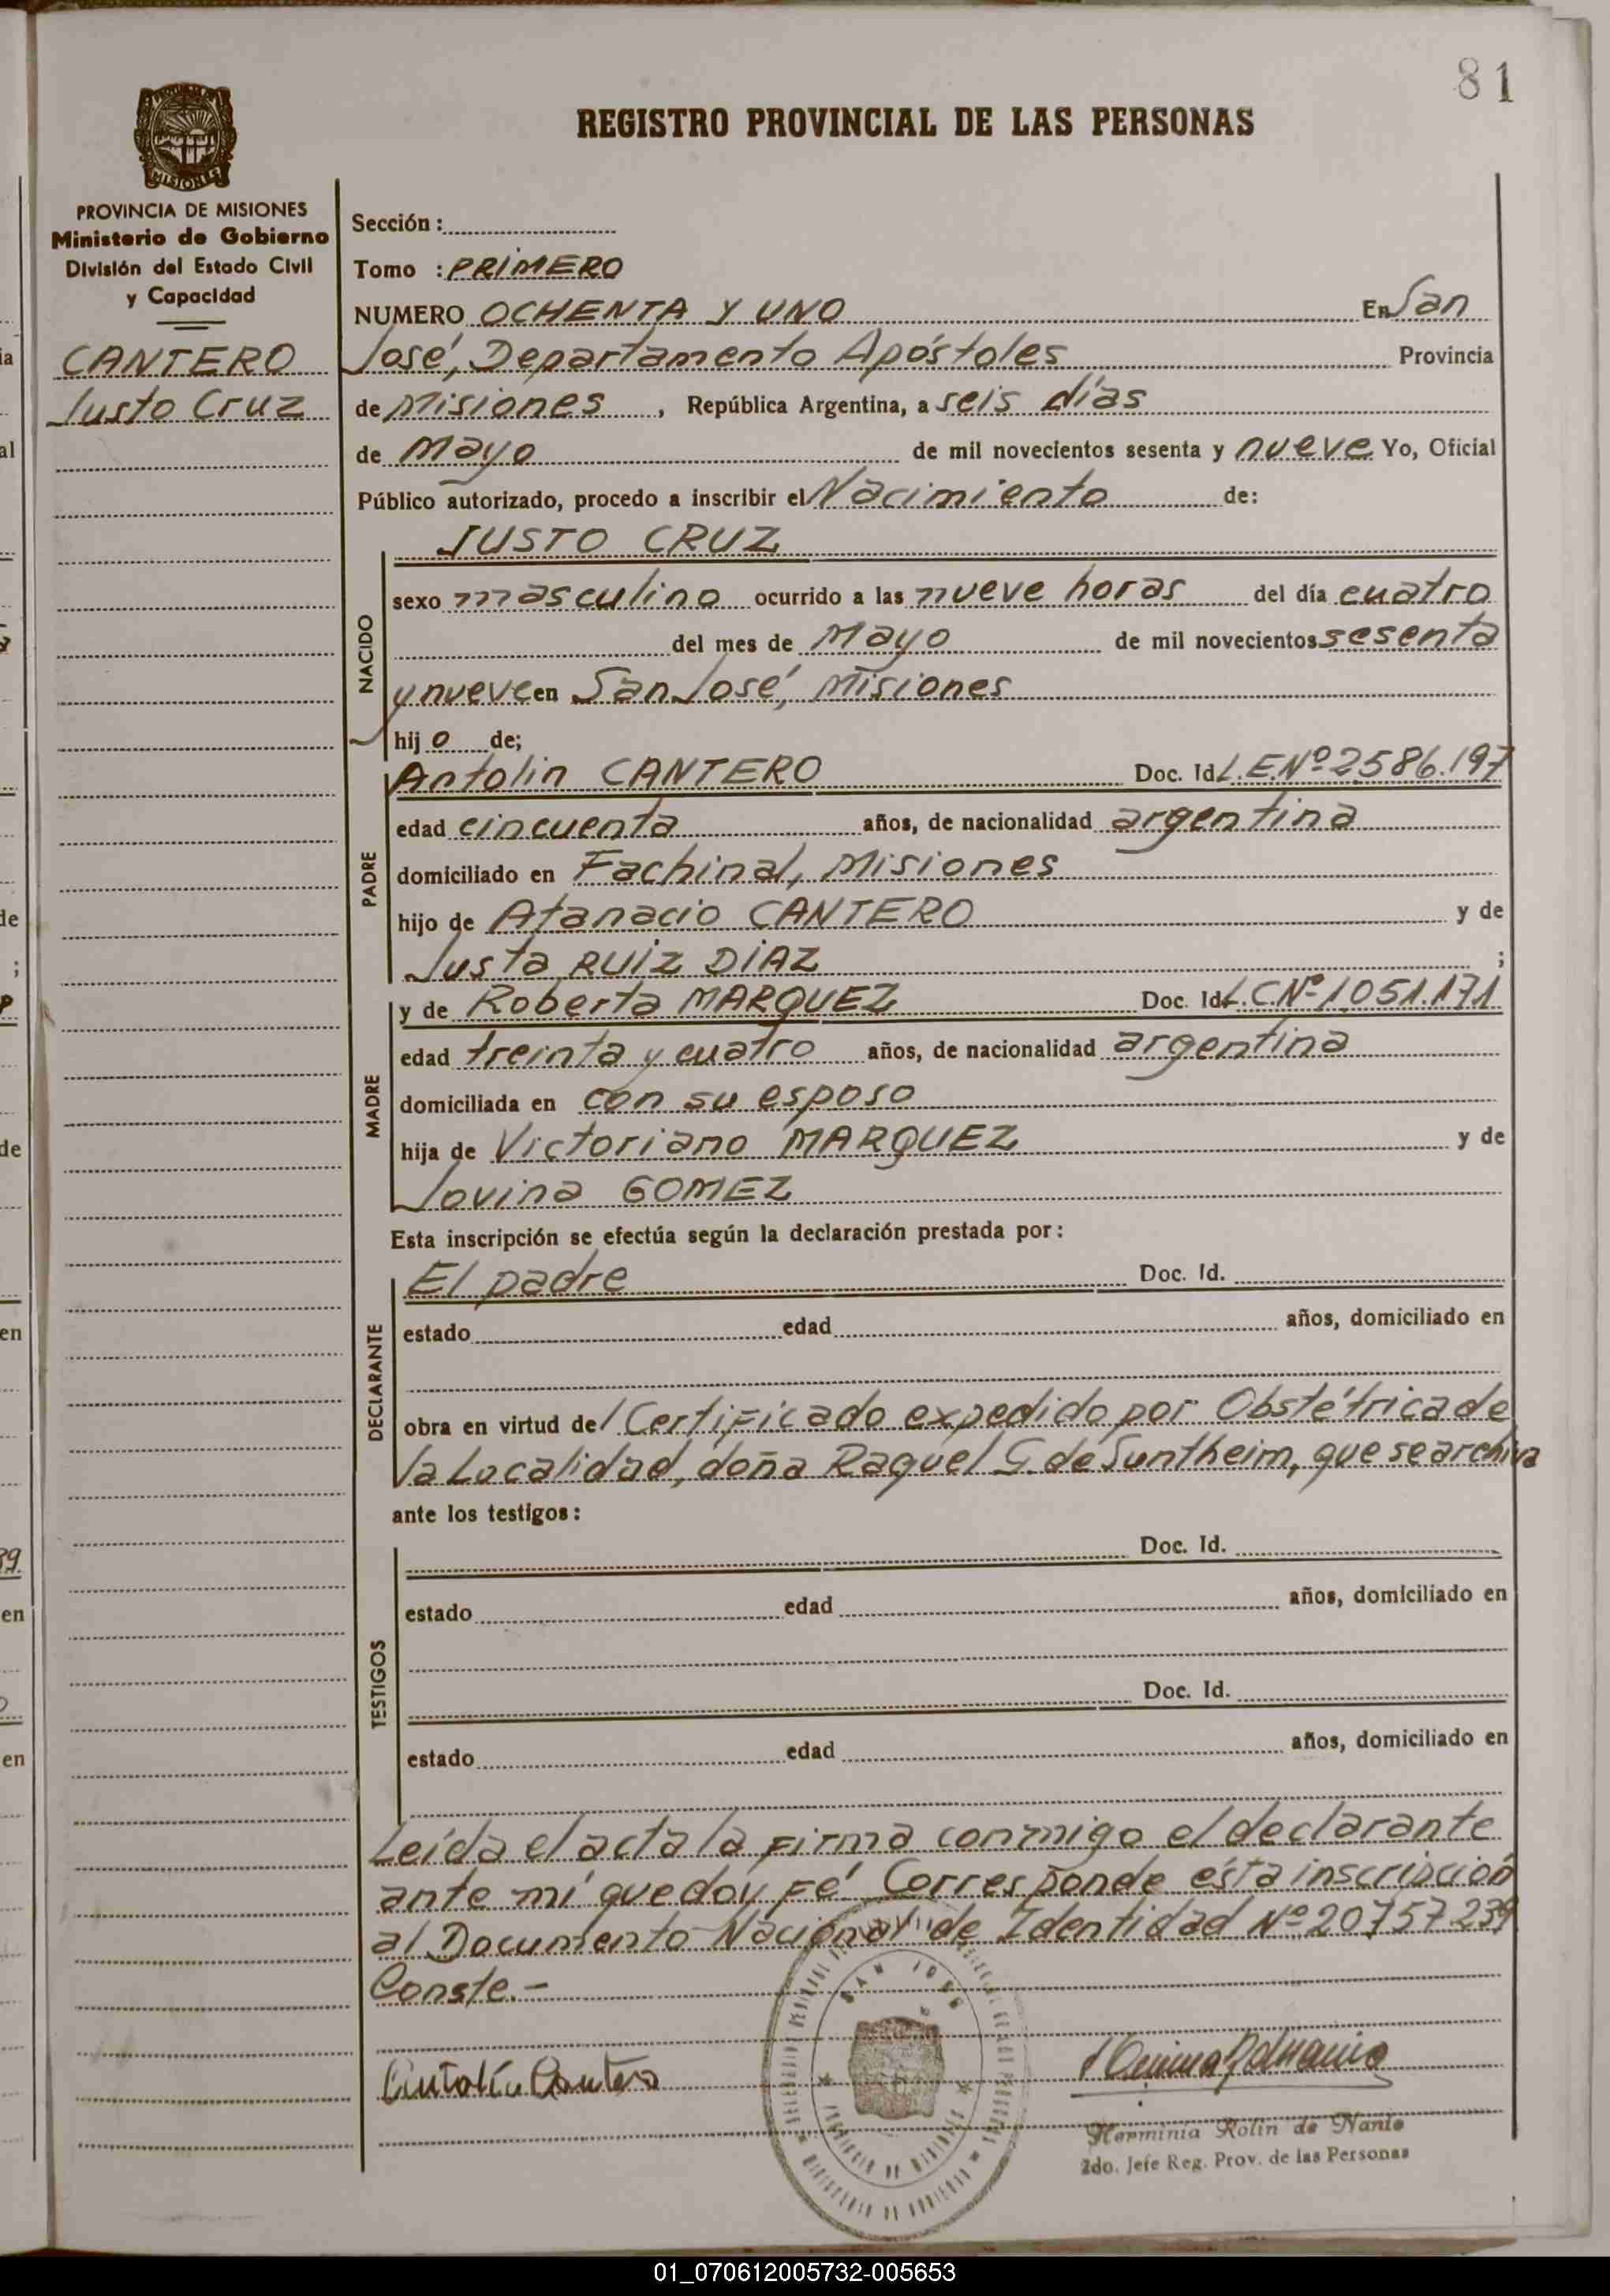 81
REGISTRO PROVINCIAL DE LAS PERSONAS
MISIONES
PROVINCIA DE MISIONES
Ministerio de Gobierno
División del Estado Civil
y Capacidad
CANTERO
Justo Cruz
Sección:
Tomo : PRIMERO
NUMERO OCHENTA Y UNO En San
José, Departamento Apóstoles Provincia
de Misiones , República Argentina, a seis días
de Mayo de mil novecientos sesenta y nueve Yo, Oficial
Público autorizado, procedo a inscribir el Nacimiento de:
NACIDO
JUSTO CRUZ
sexo masculino ocurrido a las nueve horas del día cuatro
del mes de Mayo de mil novecientos sesenta
y nueve en San José, Misiones
hijo de;
PADRE
Antolin CANTERO Doc. Id L.E.Nº 2.586.197
edad cincuenta años, de nacionalidad argentina
domiciliado en Fachinal, Misiones
hijo de Atanacio CANTERO y de
Justa RUIZ DIAZ ;
MADRE
y de Roberta MARQUEZ Doc. Id L.C.Nº 1.051.171
edad treinta y cuatro años, de nacionalidad argentina
domiciliada en con su esposo
hija de Victoriano MARQUEZ y de
Jovina GOMEZ
Esta inscripción se efectúa según la declaración prestada por:
DECLARANTE
El padre Doc. Id.
estado edad años, domiciliado en
obra en virtud del Certificado expedido por Obstétrica de
la Localidad, doña Raquel G. de Suntheim, que se archiva
ante los testigos:
TESTIGOS
Doc. Id.
estado edad años, domiciliado en
Doc. Id.
estado edad años, domiciliado en
Leída el acta la firma conmigo el declarante
ante mí que doy fé. Corresponde ésta inscripción
al Documento Nacional de Identidad Nº 20.757.239
Conste.-
SAN JOSE
PROVINCIA DE MISIONES
MINISTERIO DE GOBIERNO
Antolín Cantero
Herminia Rolin de Nanio
2do. Jefe Reg. Prov. de las Personas
01_070612005732-005653